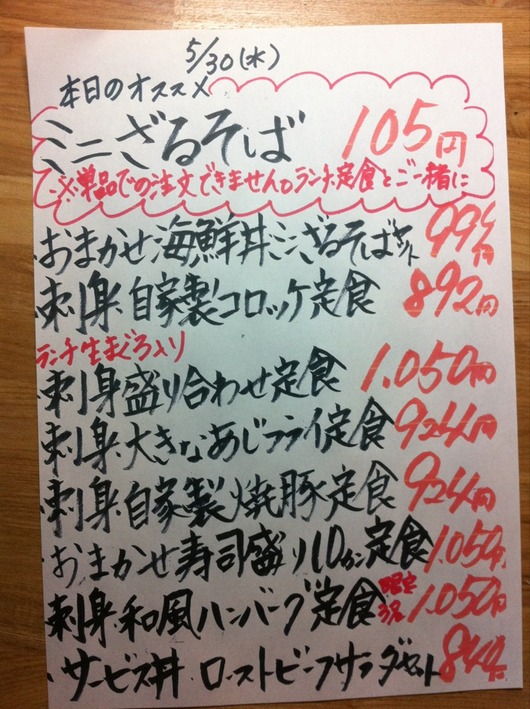 5/30(水)
本日のオススメ
ミニざるそば 105円
※単品での注文できません。ランチ定食とご一緒に
・おまかせ海鮮丼ミニざるそばセット 994円
・刺身・自家製コロッケ定食 892円
ランチ生まぐろ入り
・刺身盛り合わせ定食 1.050円
・刺身・大きなあじフライ定食 924円
・刺身・自家製焼豚定食 924円
・おまかせ寿司盛り10カン定食 1.050円
・刺身・和風ハンバーグ定食 限定3名 1.050円
・サービス丼 ローストビーフサラダセット 840円